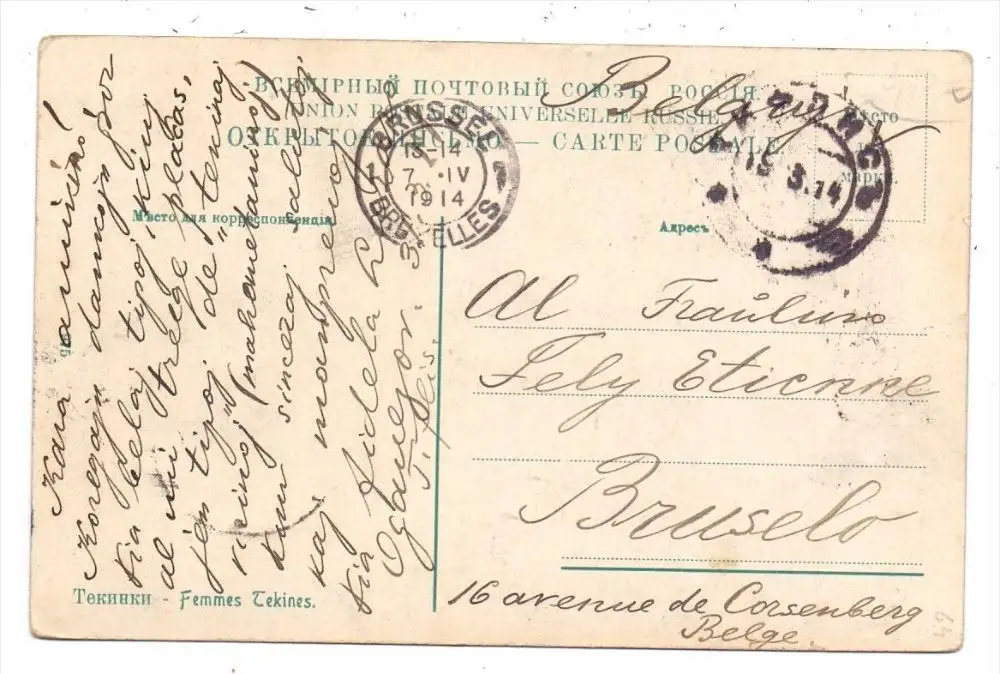 ВСЕМІРНЫЙ ПОЧТОВЫЙ СОЮЗЪ. РОССІЯ.
UNION POSTALE UNIVERSELLE RUSSIE
ОТКРЫТОЕ ПИСЬМО — CARTE POSTALE
Мѣсто
для
марки.
Belgruj
BRUSSEL
1 13-14 1
7 IV
1914
BRUXELLES
15 3.14
Мѣсто для корреспонденціи
Адресъ
Kara amikino!
Koregajn dankojn por
tia belaj tipoj, kiuj
al mi trege plaĉas,
jen tipoj de "tekinaj
virinoj" (mahometaninoj)
kun sinceraj salutoj
kaj manpremo
tia fidela
Al Fraŭlino
Fely Etienne
Bruselo
16 avenue de Corsenberg
Belge.
Текинки - Femmes Tekines.